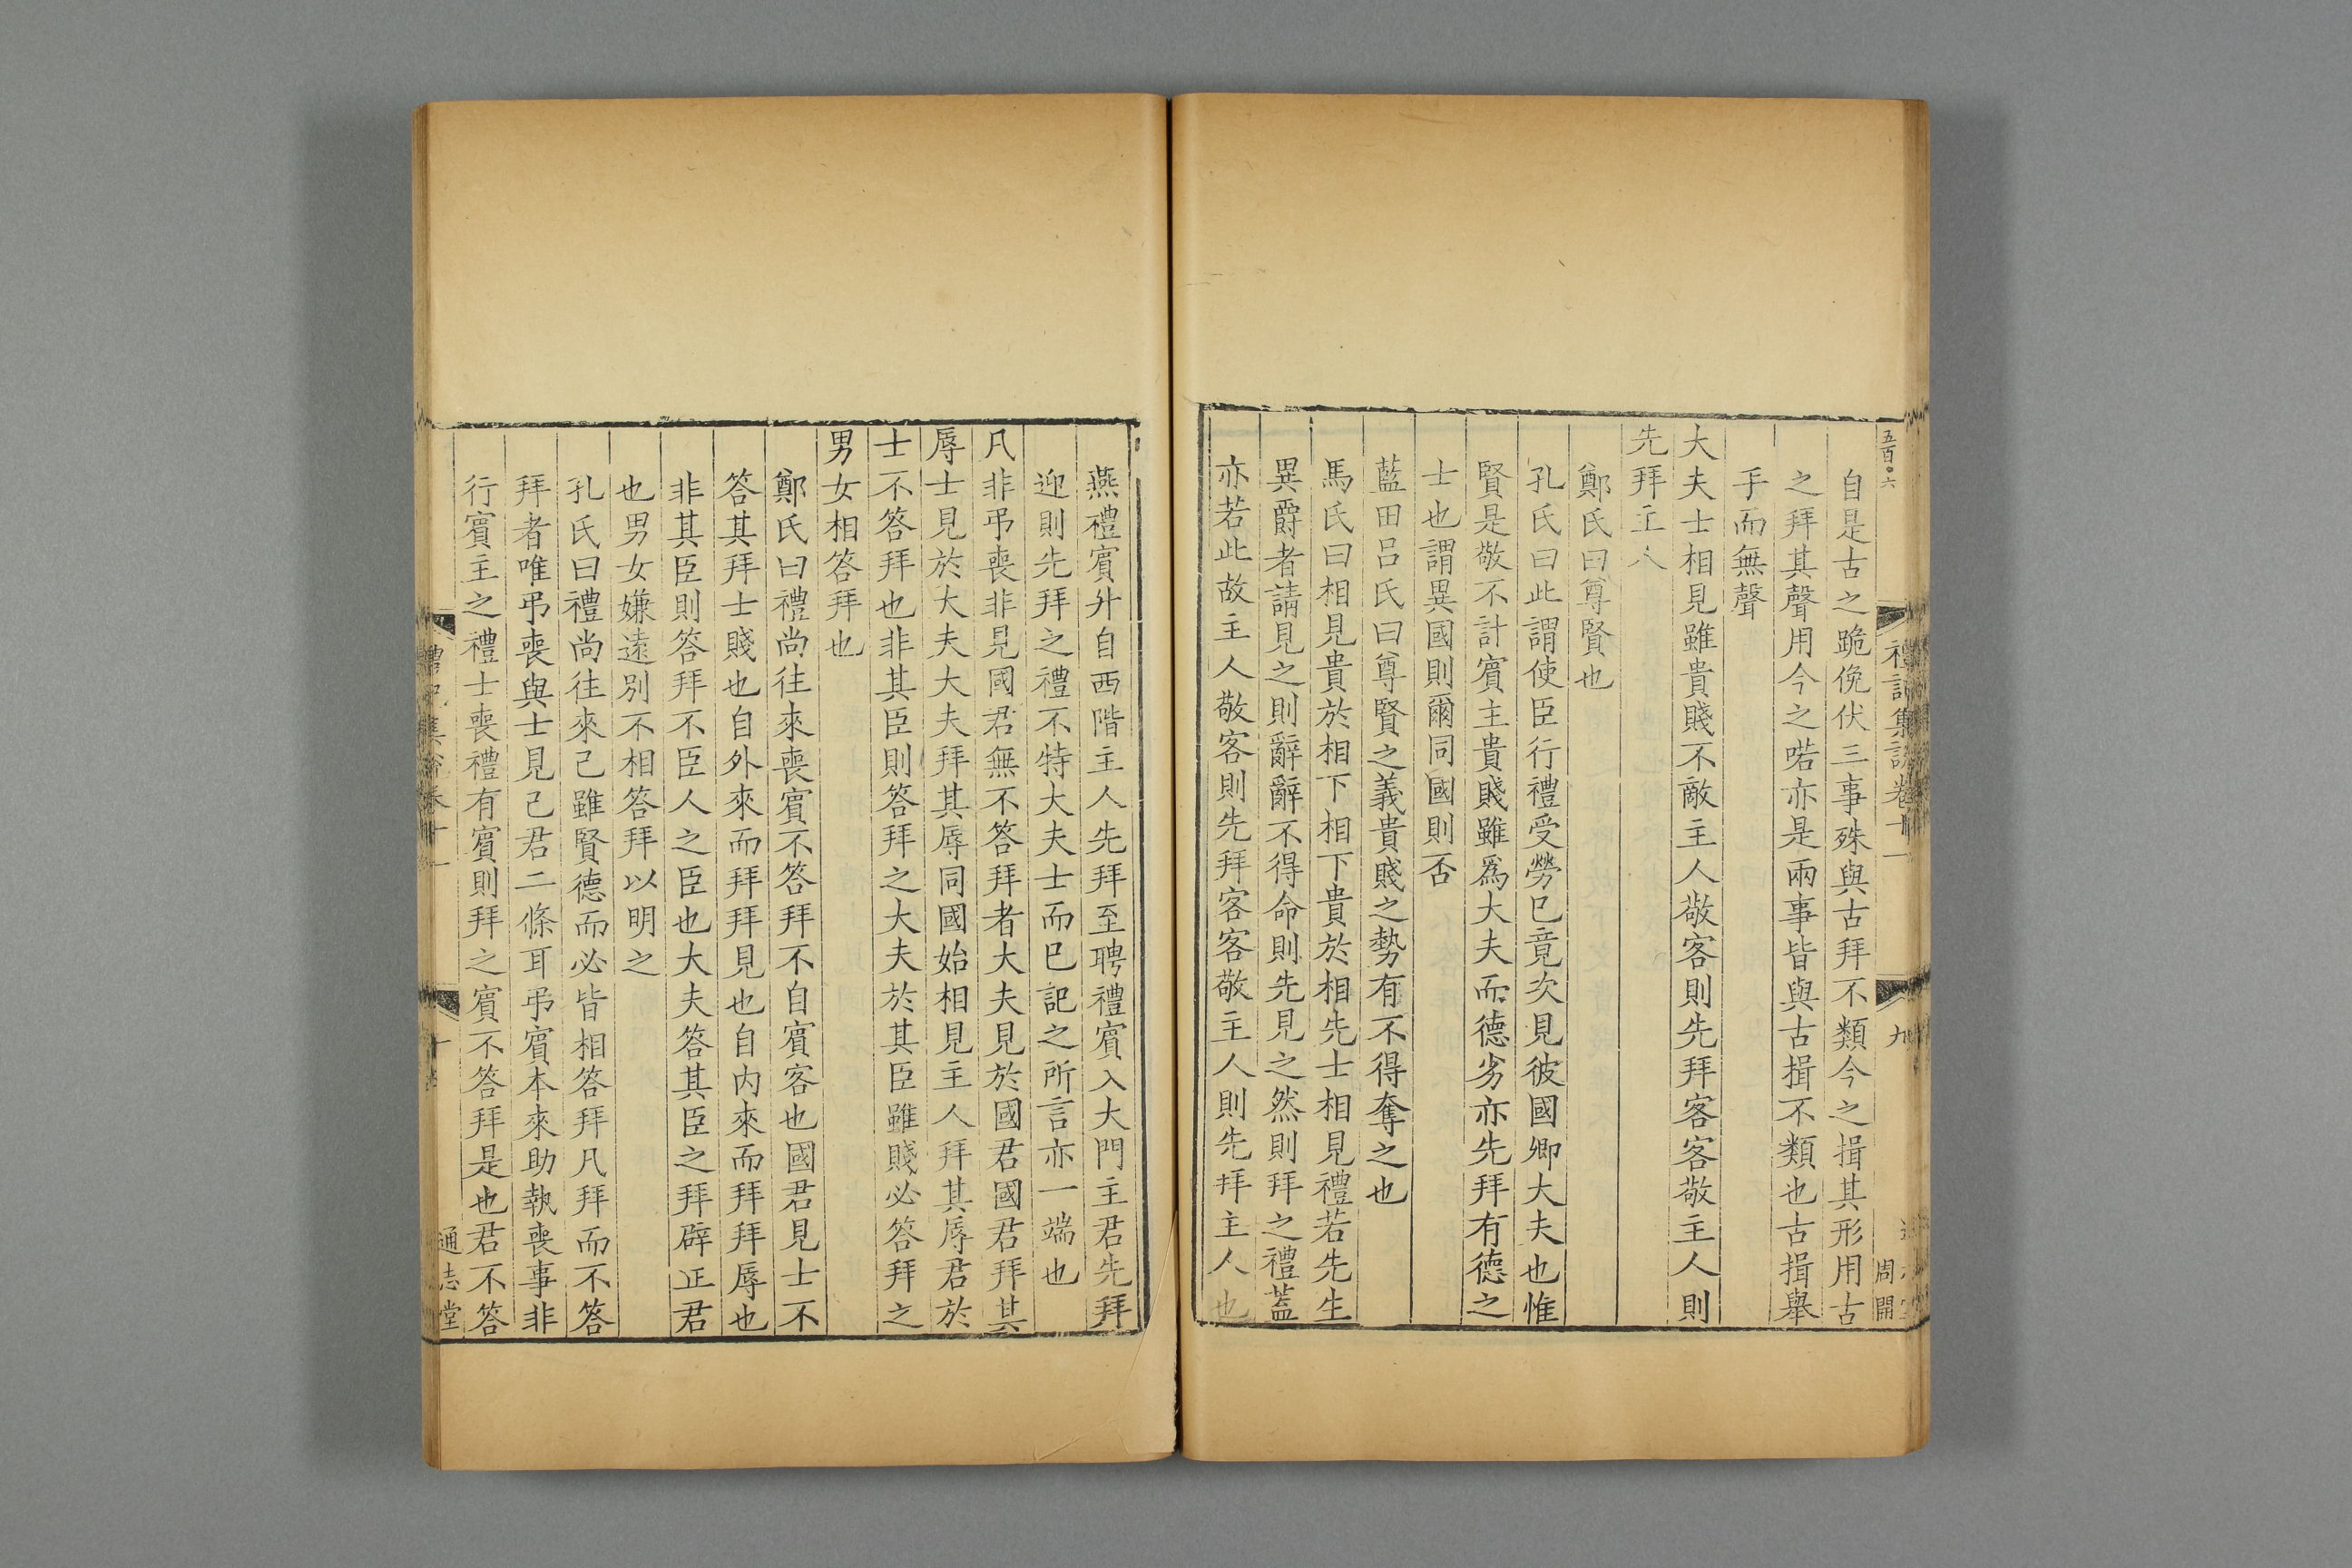 五百◦六
禮記集說卷十一 九 周開
自是古之跪俛伏三事殊與古拜不類今之揖其形用古
之拜其聲用今之喏亦是兩事皆與古揖不類也古揖舉
手而無聲
大夫士相見雖貴賤不敵主人敬客則先拜客客敬主人則
先拜主人
鄭氏曰尊賢也
孔氏曰此謂使臣行禮受勞已竟次見彼國卿大夫也惟
賢是敬不計賓主貴賤雖爲大夫而德劣亦先拜有德之
士也謂異國則爾同國則否
藍田呂氏曰尊賢之義貴賤之勢有不得奪之也
馬氏曰相見貴於相下相下貴於相先士相見禮若先生
異爵者請見之則辭辭不得命則先見之然則拜之禮蓋
亦若此故主人敬客則先拜客客敬主人則先拜主人也
燕禮賓升自西階主人先拜至聘禮賓入大門主君先拜
迎則先拜之禮不特大夫士而已記之所言亦一端也
凡非弔喪非見國君無不答拜者大夫見於國君國君拜其
辱士見於大夫大夫拜其辱同國始相見主人拜其辱君於
士不答拜也非其臣則答拜之大夫於其臣雖賤必答拜之
男女相答拜也
鄭氏曰禮尚往來喪賓不答拜不自賓客也國君見士不
答其拜士賤也自外來而拜拜見也自內來而拜拜辱也
非其臣則答拜不臣人之臣也大夫答其臣之拜辟正君
也男女嫌遠別不相答拜以明之
孔氏曰禮尚往來己雖賢德而必皆相答拜凡拜而不答
拜者唯弔喪與士見己君二條耳弔賓本來助執喪事非
行賓主之禮士喪禮有賓則拜之賓不答拜是也君不答
禮記集說卷十一 十 通志堂